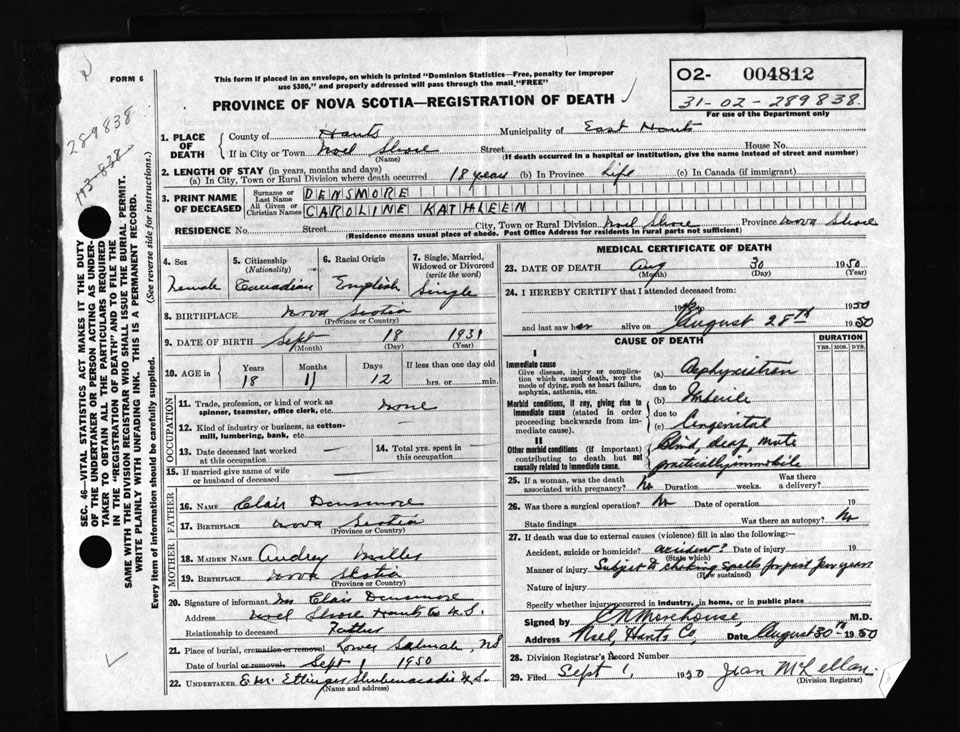 N
FORM 6
289838
193-838
This form if placed in an envelope, on which is printed "Dominion Statistics—Free, penalty for improper
use $300," and properly addressed will pass through the mail "FREE"
PROVINCE OF NOVA SCOTIA—REGISTRATION OF DEATH
O2- 004812
31-02-289838
For use of the Department only
SEC. 46—VITAL STATISTICS ACT MAKES IT THE DUTY
OF THE UNDERTAKER OR PERSON ACTING AS UNDER-
TAKER TO OBTAIN ALL THE PARTICULARS REQUIRED
IN THE "REGISTRATION OF DEATH" AND TO FILE THE
SAME WITH THE DIVISION REGISTRAR WHO SHALL ISSUE THE BURIAL PERMIT.
WRITE PLAINLY WITH UNFADING INK. THIS IS A PERMANENT RECORD.
Every item of information should be carefully supplied. (See reverse side for instructions.)
1. PLACE OF DEATH { County of Hants Municipality of East Hants
If in City or Town Noel Shore Street House No.
(Name) (If death occurred in a hospital or institution, give the name instead of street and number)
2. LENGTH OF STAY (in years, months and days)
(a) In City, Town or Rural Division where death occurred 18 years (b) In Province Life (c) In Canada (if immigrant)
3. PRINT NAME OF DECEASED { Surname or Last Name DENSMORE
All Given or Christian Names CAROLINE KATHLEEN
RESIDENCE No. Street City, Town or Rural Division Noel Shore Province Nova Shore
(Residence means usual place of abode. Post Office Address for residents in rural parts not sufficient)
4. Sex Female
5. Citizenship (Nationality) Canadian
6. Racial Origin English
7. Single, Married, Widowed or Divorced (write the word) Single
8. BIRTHPLACE Nova Scotia
(Province or Country)
9. DATE OF BIRTH Sept 18 1931
(Month) (Day) (Year)
10. AGE in { Years Months Days If less than one day old
18 11 12 hrs. or min.
OCCUPATION
11. Trade, profession, or kind of work as spinner, teamster, office clerk, etc. None
12. Kind of industry or business, as cotton-mill, lumbering, bank, etc. —
13. Date deceased last worked at this occupation —
14. Total yrs. spent in this occupation —
15. If married give name of wife or husband of deceased
FATHER
16. NAME Clair Densmore
17. BIRTHPLACE Nova Scotia
(Province or Country)
MOTHER
18. MAIDEN NAME Audrey Miller
19. BIRTHPLACE Nova Scotia
(Province or Country)
20. Signature of informant Mr Clair Densmore
Address Noel Shore Hants Co N.S.
Relationship to deceased Father
21. Place of burial, cremation or removal Lower Selmah, NS
Date of burial or removal Sept 1 1950
22. UNDERTAKER E M. Ettinger Shubenacadie N.S.
(Name and address)
MEDICAL CERTIFICATE OF DEATH
23. DATE OF DEATH Aug 30 1950
(Month) (Day) (Year)
24. I HEREBY CERTIFY that I attended deceased from:
19 1950
and last saw her alive on August 28th 1950
CAUSE OF DEATH
DURATION
YRS. MOS. DYS.
I
Immediate cause
Give disease, injury or complication which caused death, NOT the mode of dying, such as heart failure, asphyxia, asthenia, etc.
(a) Asphyxiation
due to
Morbid conditions, if any, giving rise to immediate cause (stated in order proceeding backwards from immediate cause).
(b) Imbecile
due to
(c) Congenital
II
Other morbid conditions (if important) contributing to death but not causally related to immediate cause.
Blind, deaf, mute
practically immobile
25. If a woman, was the death associated with pregnancy? No Duration weeks. Was there a delivery?
26. Was there a surgical operation? No Date of operation 19
State findings Was there an autopsy? No
27. If death was due to external causes (violence) fill in also the following:
Accident, suicide or homicide? accident? Date of injury 19
(State which)
Manner of injury Subject to choking spells for past few years
(How sustained)
Nature of injury
Specify whether injury occurred in industry, in home, or in public place
Signed by C R Morehouse, M.D.
Address Noel, Hants Co, Date August 30th 1950
28. Division Registrar's Record Number
29. Filed Sept 1, 1950 Jean McLellan
(Division Registrar)